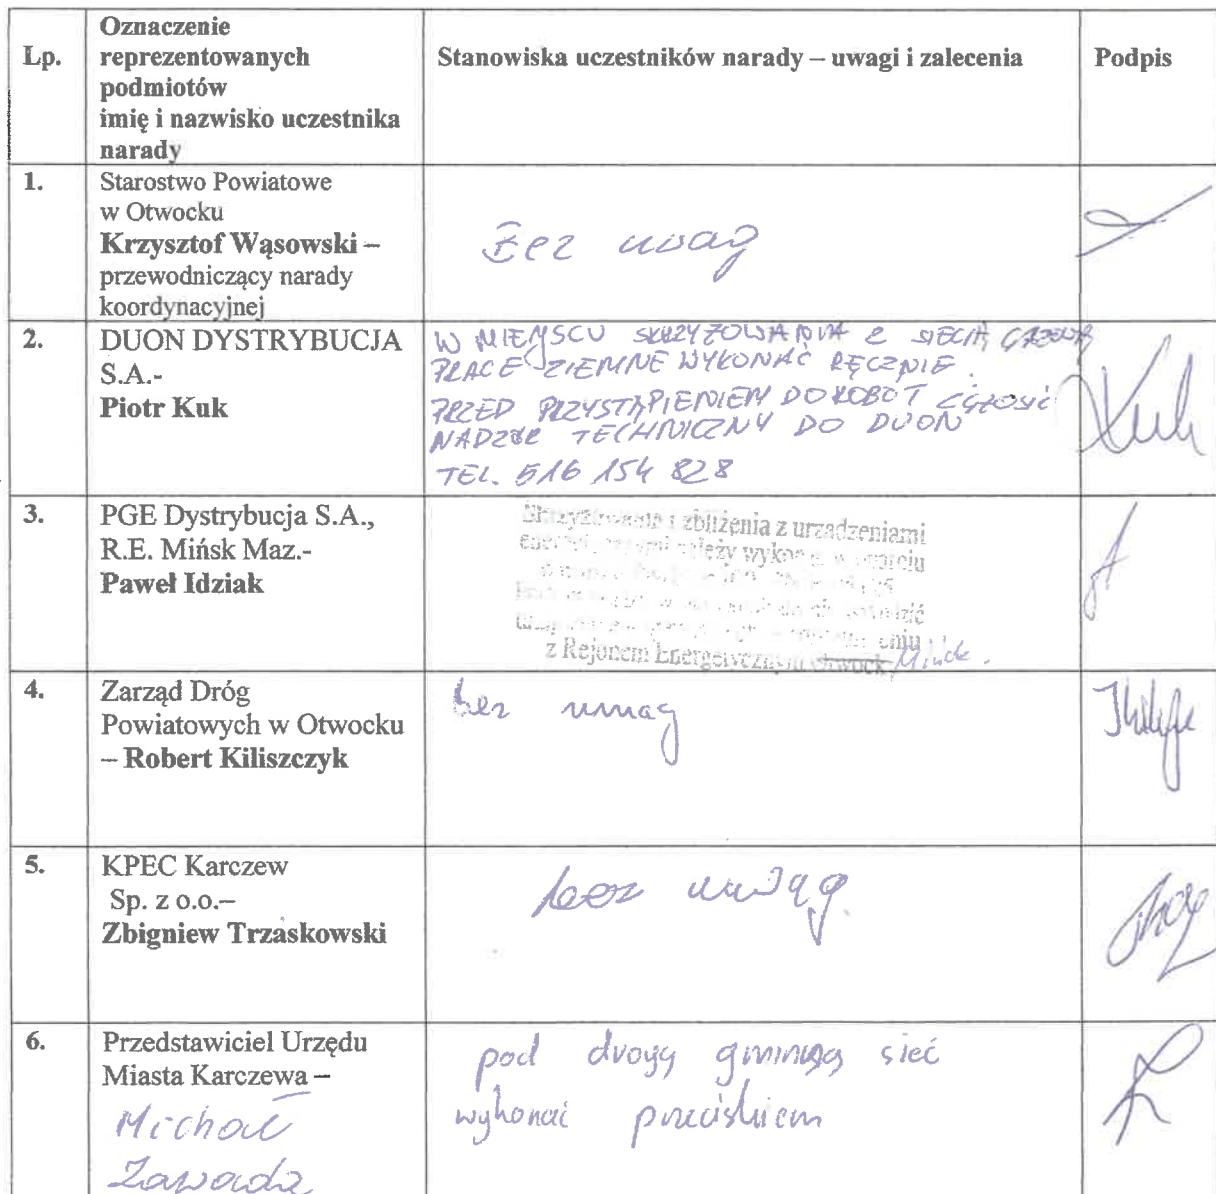 Lp.
Oznaczenie
reprezentowanych
podmiotów
imię i nazwisko uczestnika
narady
Stanowiska uczestników narady – uwagi i zalecenia
Podpis
1.
Starostwo Powiatowe
w Otwocku
Krzysztof Wąsowski –
przewodniczący narady
koordynacyjnej
Bez uwag
2.
DUON DYSTRYBUCJA
S.A.-
Piotr Kuk
W MIEJSCU SKRZYŻOWANIA Z SIECIĄ GAZOWĄ
PRACE ZIEMNE WYKONAĆ RĘCZNIE.
PRZED PRZYSTĄPIENIEM DO ROBÓT ZGŁOSIĆ
NADZÓR TECHNICZNY DO DUON
TEL. 516 154 828
Kuk
3.
PGE Dystrybucja S.A.,
R.E. Mińsk Maz.-
Paweł Idziak
Skrzyżowanie i zbliżenia z urządzeniami
należy
z Rejonem Energetycznym Otwock Mińsk.
4.
Zarząd Dróg
Powiatowych w Otwocku
– Robert Kiliszczyk
bez uwag
5.
KPEC Karczew
Sp. z o.o.–
Zbigniew Trzaskowski
bez uwag.
6.
Przedstawiciel Urzędu
Miasta Karczewa –
Michał
Zawada
pod drogą gminną sieć
wykonać przeciskiem